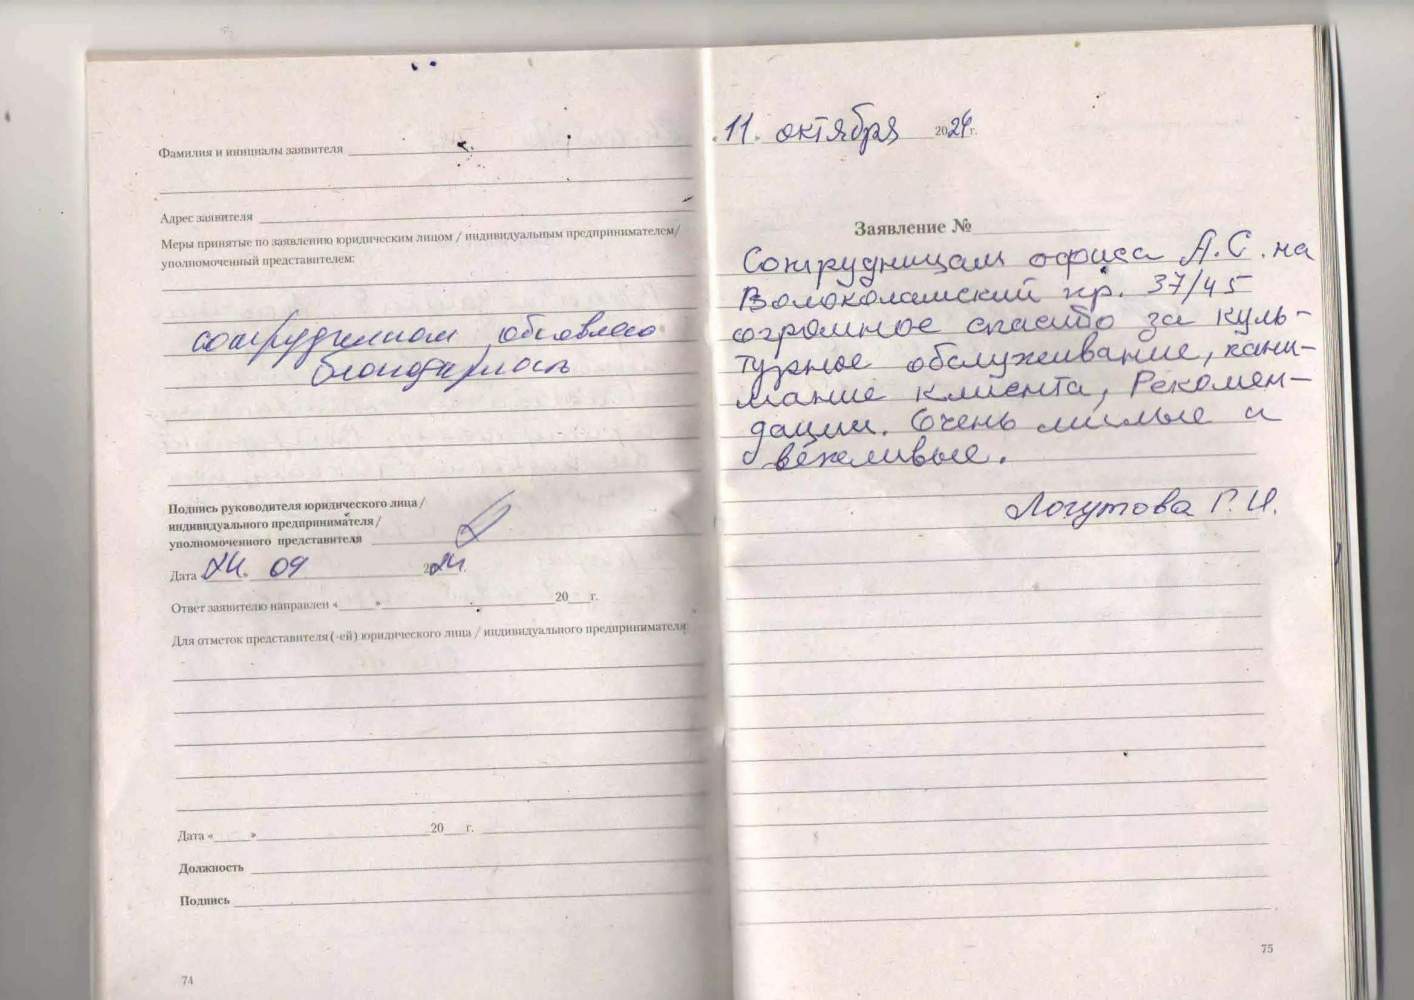 Фамилия и инициалы заявителя
Адрес заявителя
Меры принятые по заявлению юридическим лицом / индивидуальным предпринимателем/
уполномоченный представителем:
сотрудникам объявлено
благодарность
Подпись руководителя юридического лица /
индивидуального предпринимателя /
уполномоченного представителя
Дата 24. 09 2024г.
Ответ заявителю направлен «____»____20___г.
Для отметок представителя (-ей) юридического лица / индивидуального предпринимателя
Дата «____»____20___г.
Должность
Подпись
74
11. октября 2024г.
Заявление №
Сотрудницам офиса А.С. на
Волоколамский пр. 37/45
огромное спасибо за куль-
турное обслуживание,
мание клиента, Рекомен-
дации. Очень милые и
вежливые.
Логутова Г.И.
75